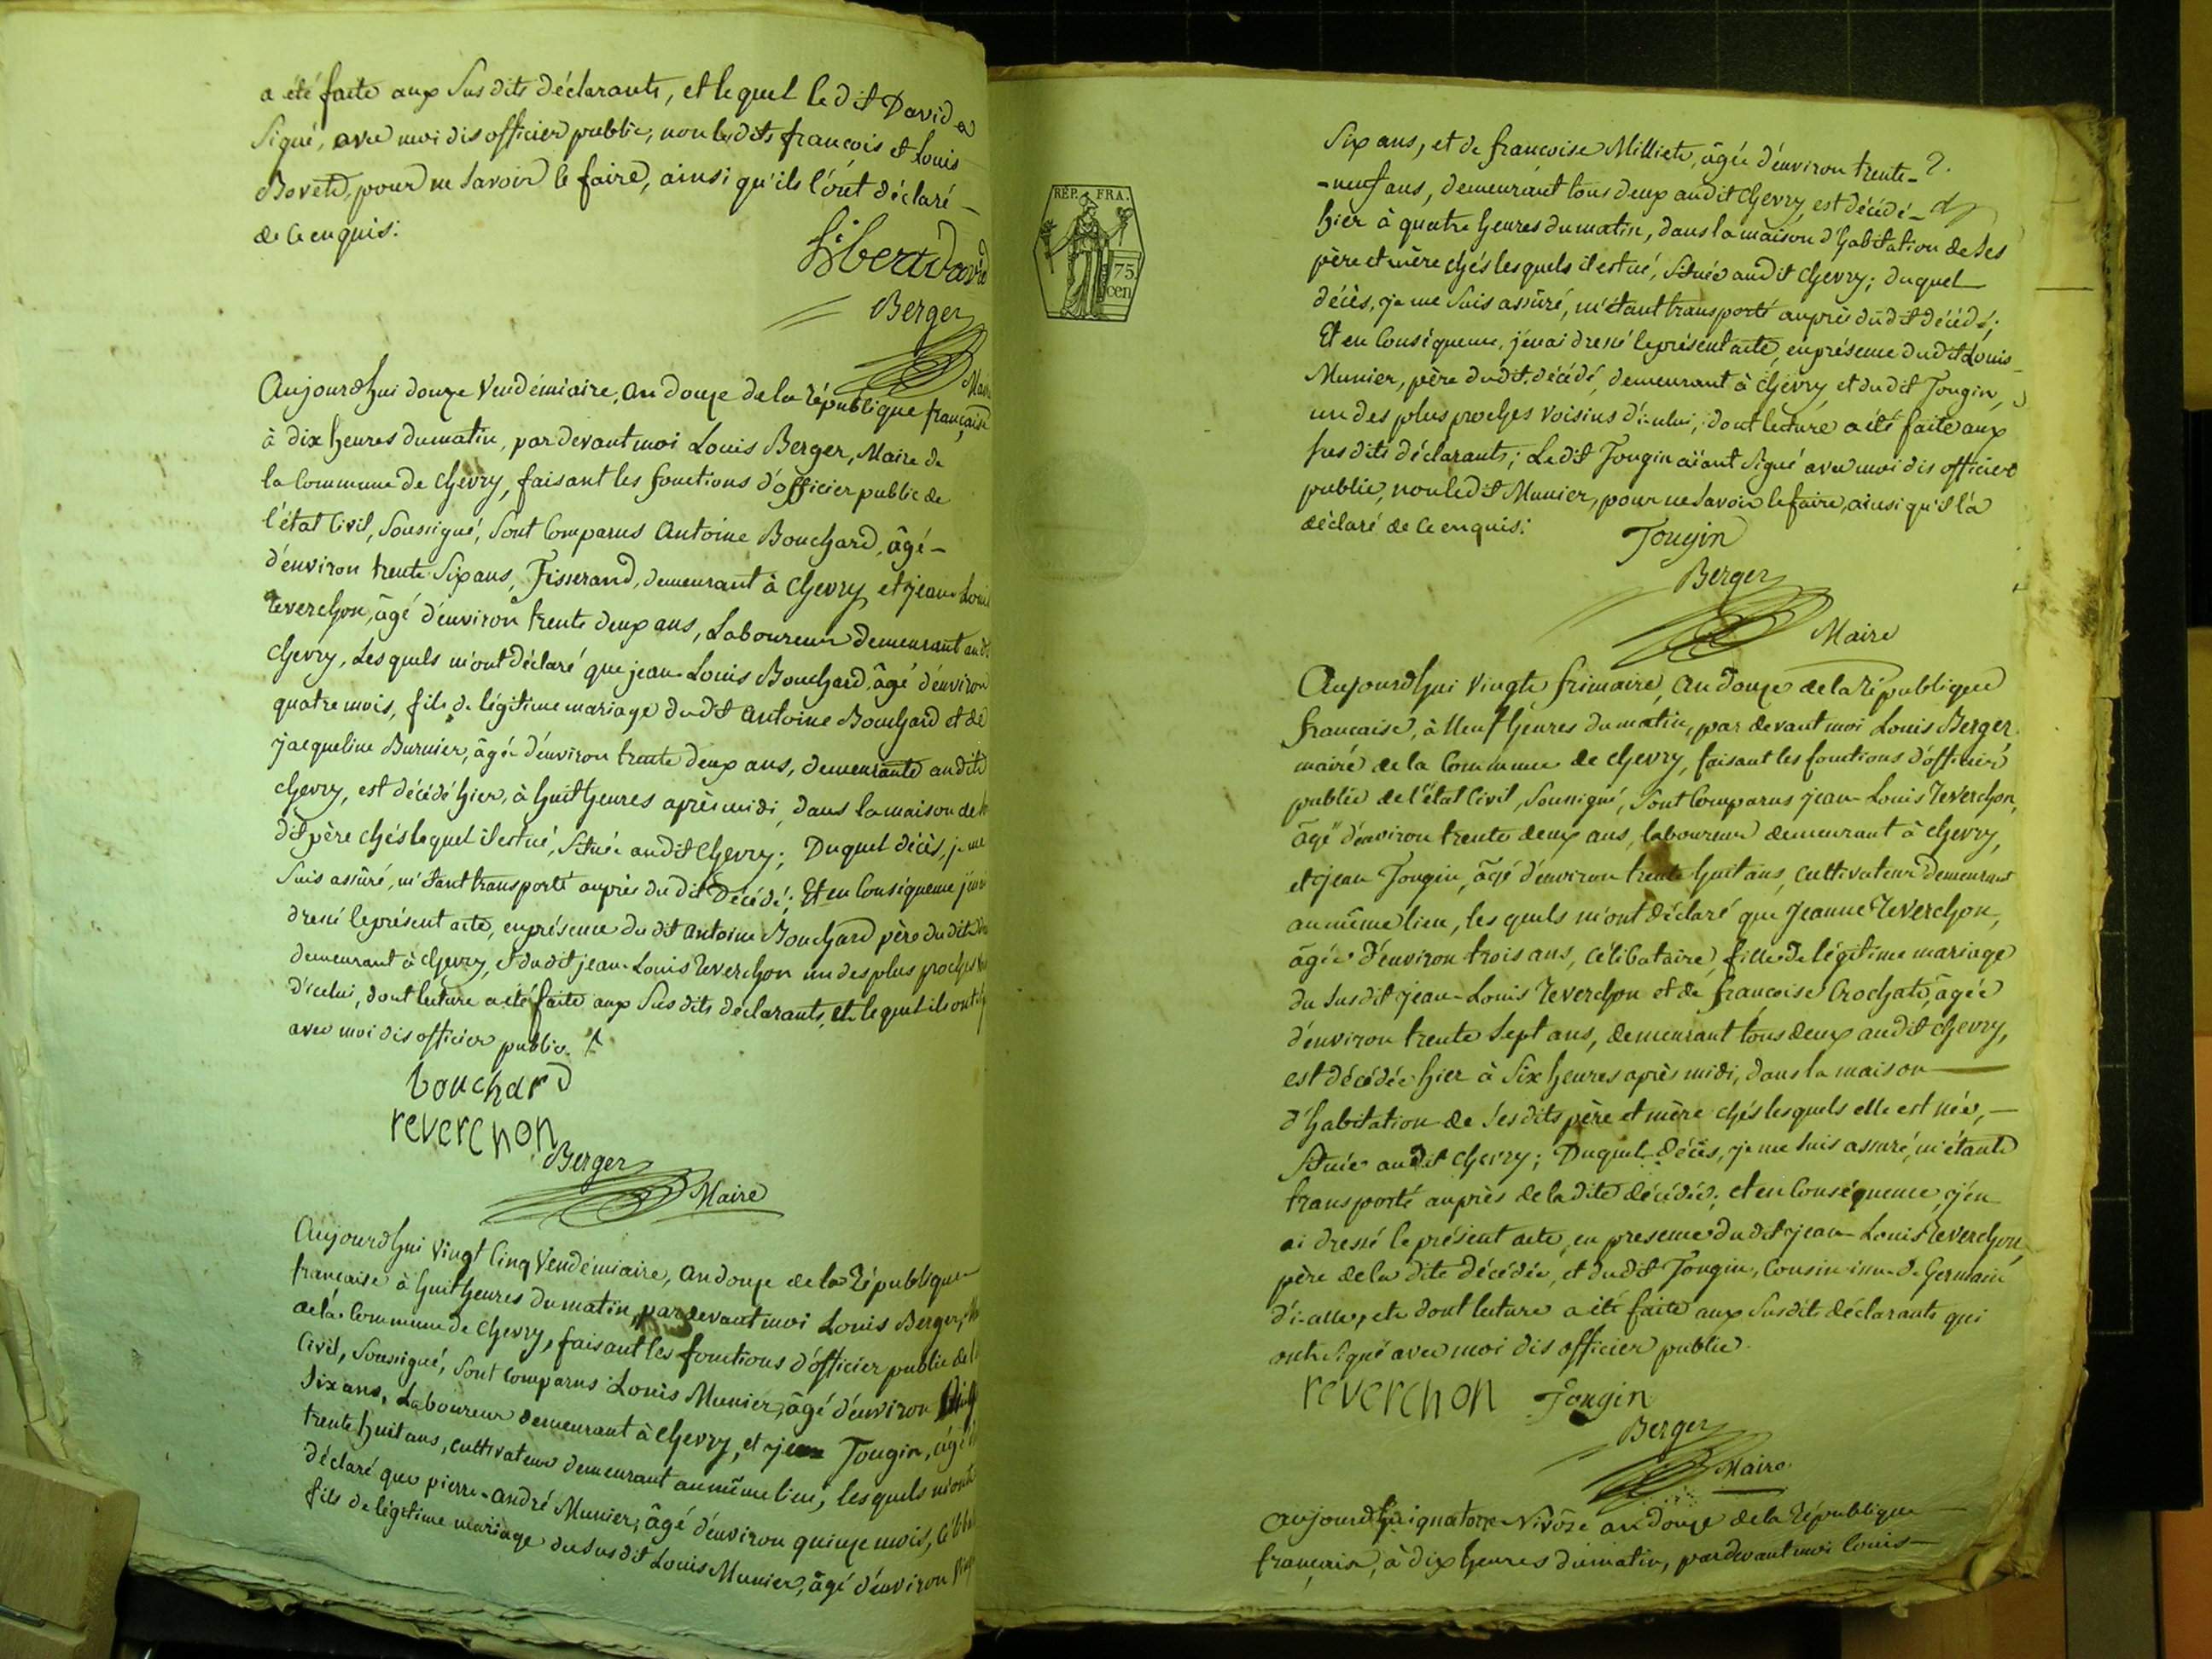 a été faite aux susdits déclarants, et lequel le dit David a
signé, avec moi dis officier public; non lesdits françois et Louis
Bovet, pour ne savoir le faire, ainsi qu'ils l'ont déclaré –
de ce enquis.
David
Berger
Maire
Aujourdhui douze Vendémiaire, an douze de la république française
à dix heures du matin, par devant moi Louis Berger, Maire de
la Commune de Chevry, faisant les fonctions d'officier public de
l'état Civil, soussigné, sont Comparus Antoine Bouchard, âgé –
d'environ trente six ans, Tisserand, demeurant à Chevry, et jean Louis
Reverchon, âgé d'environ trente deux ans, Laboureur demeurant aud
Chevry, Lesquels m'ont déclaré que jean-Louis Bouchard, âgé d'environ
quatre mois, fils de légitime mariage dudit Antoine Bouchard et de
jacqueline Burnier, âgée d'environ trente deux ans, demeurante audit
Chevry, est décédé hier, à huit heures après midi, dans la maison de
dit père chés lequel il est né, située audit Chevry; Duquel décès, je me
suis assûré, m'étant transporté auprès du dit Décédé; Et en Conséquence
dressé le présent acte, en présence du dit Antoine Bouchard père du dit
demeurant à Chevry, et du dit jean-Louis Reverchon un des plus proches
d'icelui, dont lecture a été faite aux susdits déclarants, et lequel ils ont
avec moi dis officier public.
bouchard
reverchon
Berger
Maire
Aujourdhui vingt Cinq Vendémiaire, an douze de la République
française à huit heures du matin, pardevant moi Louis Berger,
de la Commune de Chevry, faisant les fonctions d'officier public de
Civil, soussigné, sont Comparus Louis Munier, âgé d'environ
six ans, Laboureur demeurant à Chevry, et jean Tougin, âgé
trente huit ans, cultivateur demeurant au même lieu, lesquels m'ont
déclaré que pierre-andré Munier, âgé d'environ quinze mois,
fils de légitime mariage du susdit Louis Munier, âgé d'environ
REP. FRA.
75
cen
six ans, et de françoise Milliet, âgée d'environ trente-
-neuf ans, demeurant tous deux audit Chevry, est décédé –
hier à quatre heures du matin, dans la maison d'habitation de ses
père et mère chés lesquels il est né, située audit Chevry; duquel
décès, je me suis assûré, m'étant transporté auprès dudit décédé;
Et en Conséquence, j'en ai dressé le présent acte, en présence dudit Louis
Munier, père dudit décédé, demeurant à Chevry, et dudit Tougin,
un des plus proches voisins d'icelui, dont lecture a été faite aux
susdits déclarants; Le dit Tougin aïant signé avec moi dis officier
public, non le dit Munier, pour ne savoir le faire, ainsi qu'il l'a
déclaré de ce enquis.
Tougin
Berger
Maire
Aujourdhui vingt frimaire, an douze de la République
française, à neuf heures du matin, par devant moi Louis Berger
maire de la Commune de Chevry, faisant les fonctions d'officier
public de l'état Civil, soussigné, sont Comparus jean-Louis Reverchon,
âgé d'environ trente deux ans, laboureur demeurant à Chevry,
et jean Tougin, âgé d'environ trente huit ans, cultivateur demeurant
au même lieu, lesquels m'ont déclaré que Jeanne Reverchon,
âgée d'environ trois ans, célibataire, fille de légitime mariage
du susdit jean-Louis Reverchon et de françoise Crochat, âgée
d'environ trente sept ans, demeurant tous deux audit Chevry,
est décédée hier à six heures après midi, dans la maison
d'habitation de ses dits père et mère chés lesquels elle est née, –
située audit Chevry; Duquel décès, je me suis assuré, m'étant
transporté auprès de la dite décédée; et en Conséquence, j'en
ai dressé le présent acte, en présence du dit jean-Louis Reverchon,
père de la dite décédée, et dudit Tougin, Cousin de Germain
d'icelle, et dont lecture a été faite aux susdits déclarants qui
ont signé avec moi dis officier public.
reverchon Tougin
Berger
Maire
aujourdhui quatorze Nivôse an douze de la République
française, à dix heures du matin, pardevant moi Louis